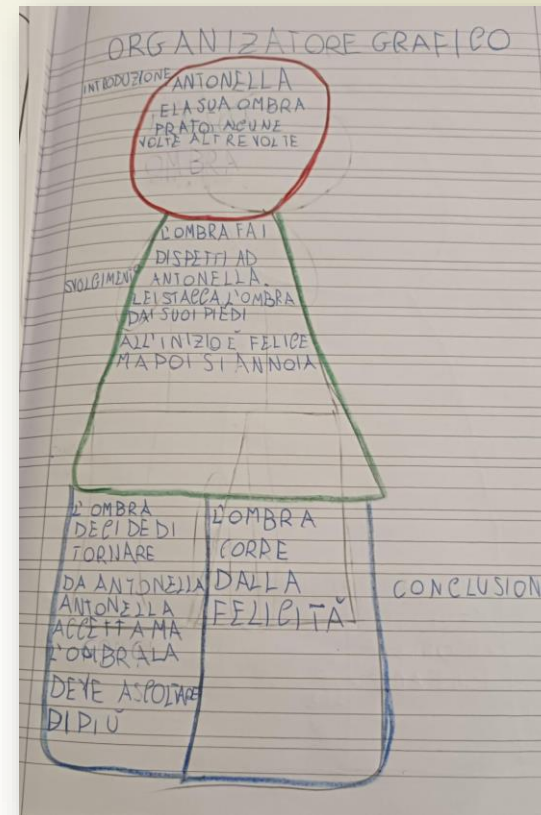 ORGANIZATORE GRAFICO
INTRODUZIONE
ANTONELLA
E LA SUA OMBRA
PRATO ALCUNE
VOLTE ALTRE VOLTE
OMBRA
SVOLGIMENTO
L'OMBRA FA I
DISPETTI AD
ANTONELLA.
LEI STACCA L'OMBRA
DAI SUOI PIEDI
ALL'INIZIO È FELICE
MA POI SI ANNOIA
L'OMBRA
DECIDE DI
TORNARE
DA ANTONELLA
ANTONELLA
ACCETTA MA
L'OMBRA LA
DEVE ASCOLTARE
DI PIÙ
L'OMBRA
CORRE
DALLA
FELICITÀ
CONCLUSION